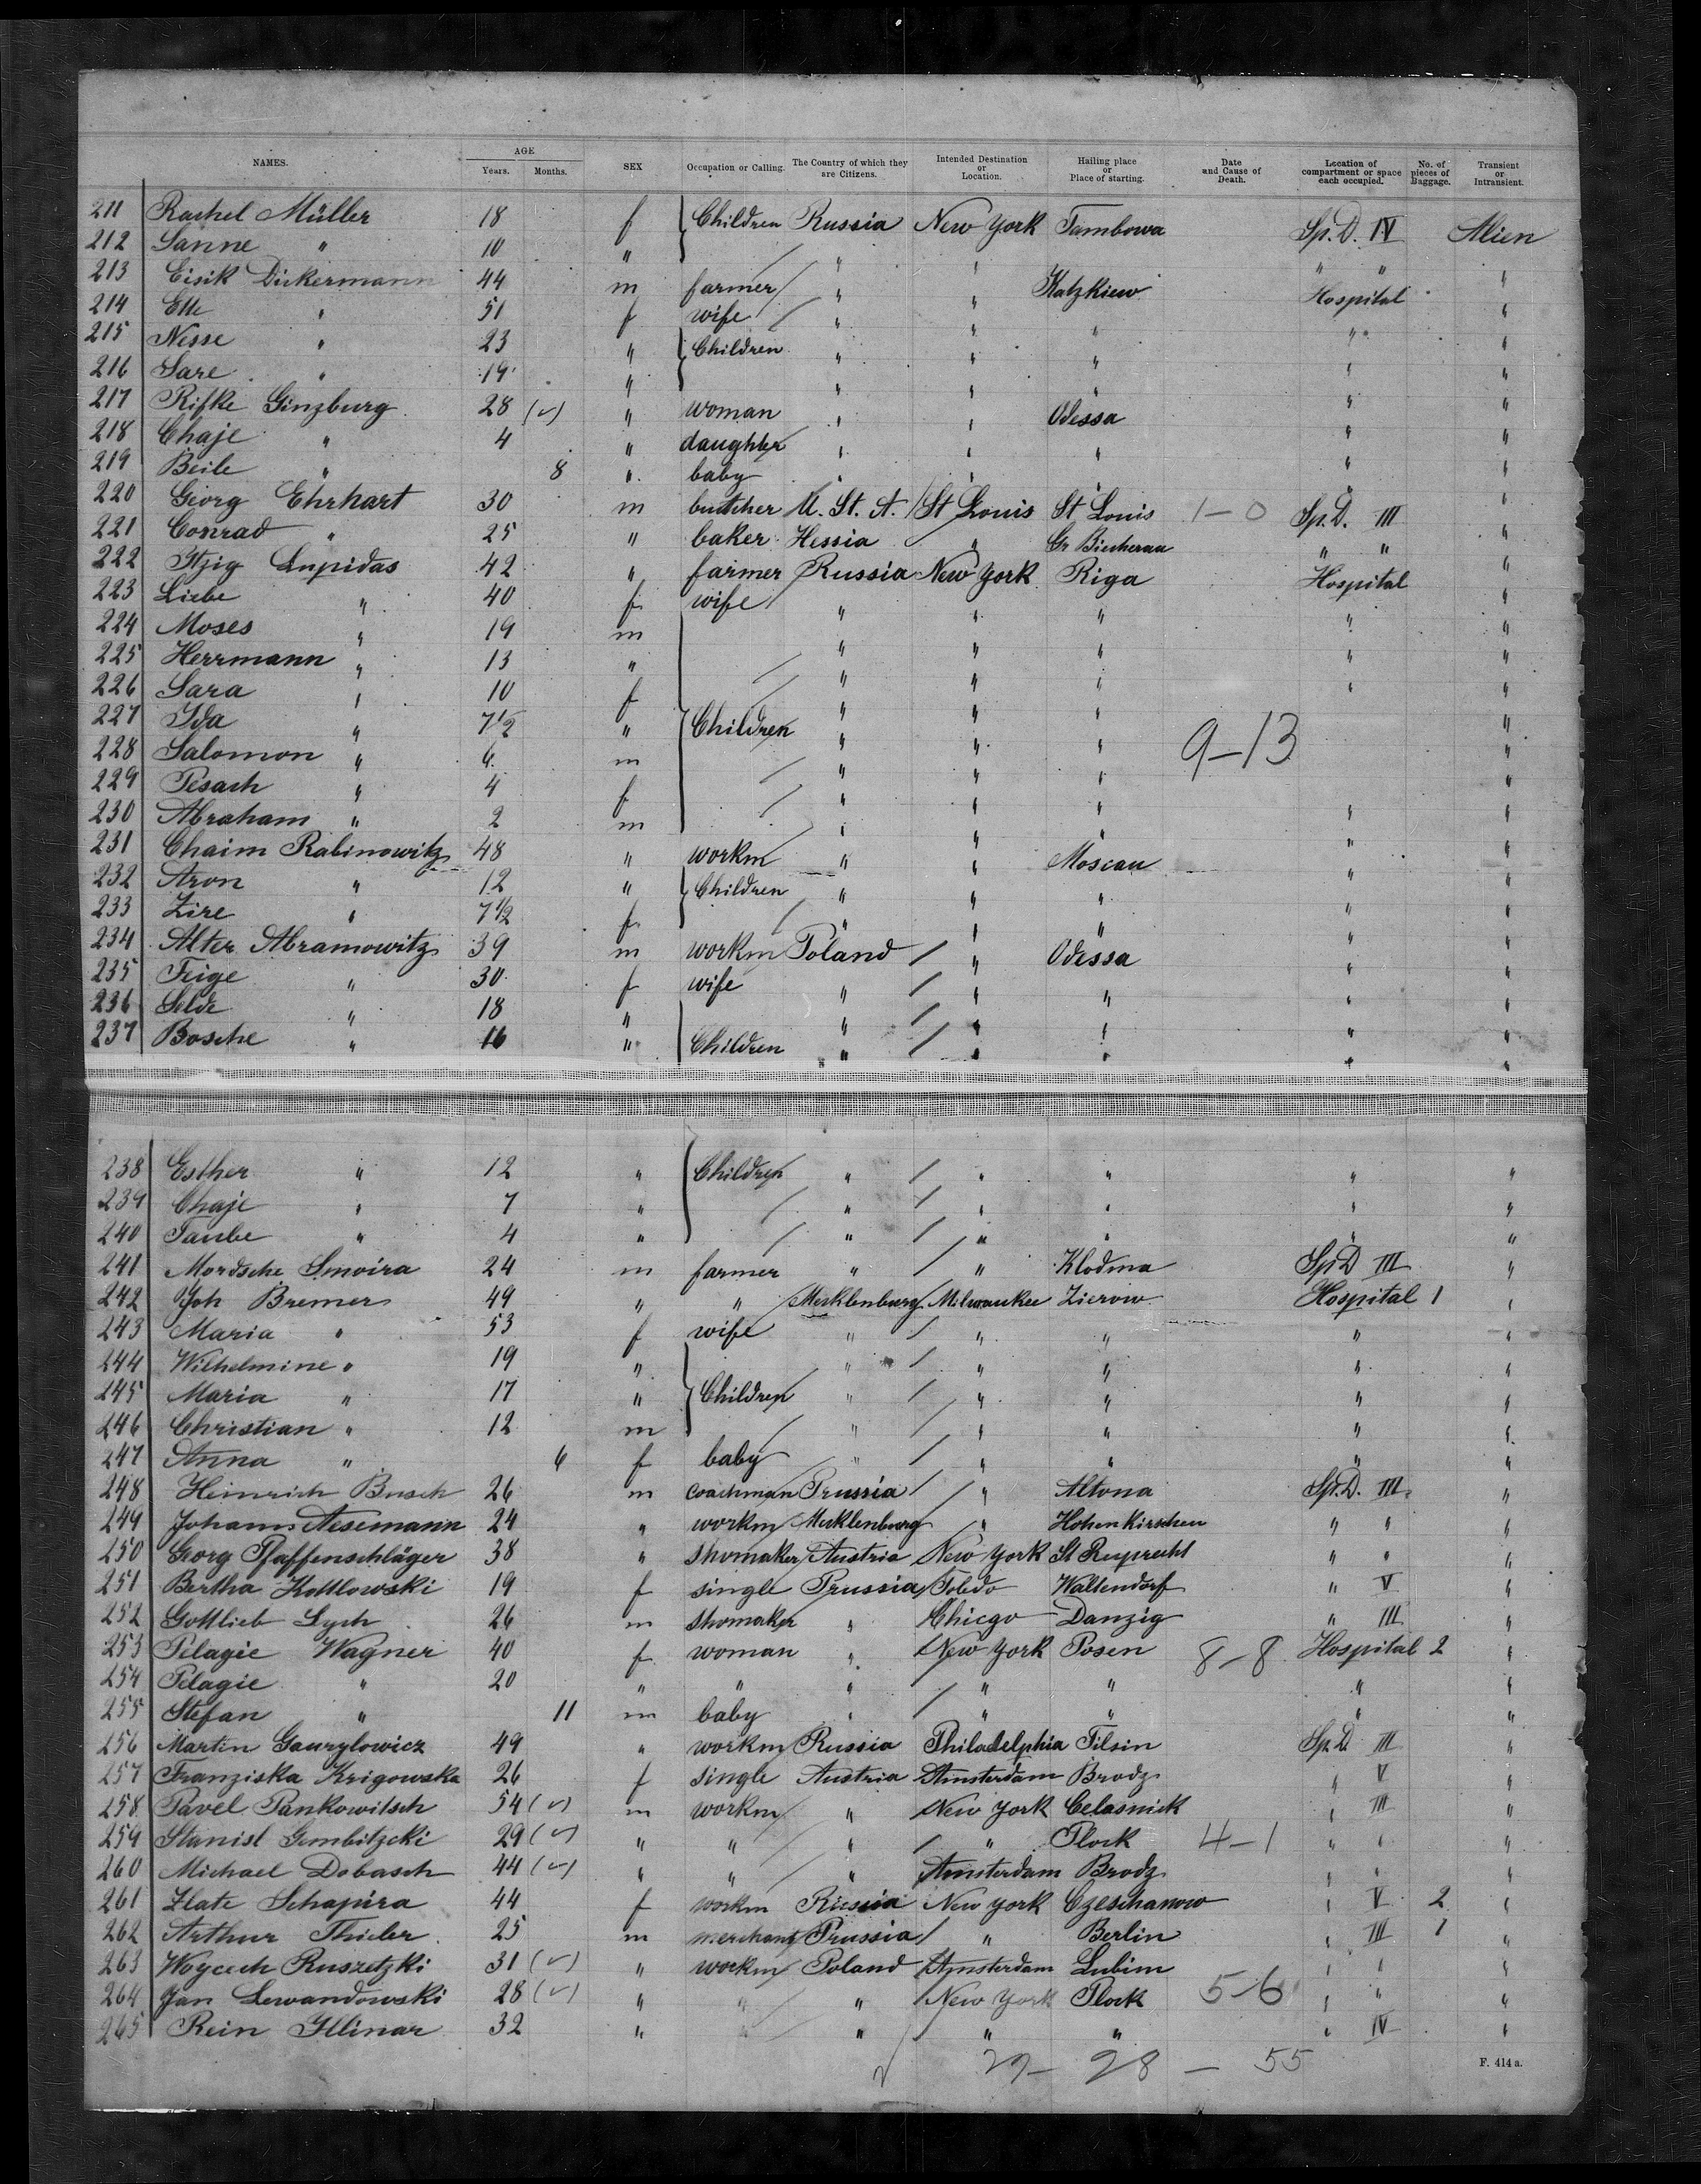 NAMES. AGE Years. Months. SEX Occupation or Calling. The Country of which they are Citizens. Intended Destination or Location. Hailing place or Place of starting. Date and Cause of Death. Location of compartment or space each occupied. No. of pieces of Baggage. Transient or Intransient.
211 Rachel Müller 18 f Children Russia New York Tambowa Sp. D. IV Alien
212 Sanne " 10 " " " " " "
213 Eisik Dickermann 44 m farmer " " Katzkiew Hospital "
214 Ette " 51 f wife " " " " "
215 Nesse " 23 " Children " " " " "
216 Sare " 19 " " " " " "
217 Rifke Ginzburg 28 (✓) " woman " " Odessa " "
218 Chaje " 4 " daughter " " " " "
219 Beile " 8 " baby " " " " "
220 Georg Ehrhart 30 m butcher U. St. A. St Louis St Louis 1-0 Sp. D. III "
221 Conrad " 25 " baker Hessia " Gr Biecherau " " "
222 Itzig Lupidas 42 " farmer Russia New York Riga Hospital "
223 Liebe " 40 f wife " " " " "
224 Moses " 19 m " " " " "
225 Herrmann " 13 " " " " " "
226 Sara " 10 f " " " "
227 Ida " 7 1/2 " Children " " " "
228 Salomon " 6 m " " " 9-13 "
229 Pesach " 4 f " " " " "
230 Abraham " 2 m " " " " "
231 Chaim Rabinowitz 48 " workm " " Moscau " "
232 Aron " 12 " Children " " " " "
233 Zire " 7 1/2 f " " " " "
234 Alter Abramowitz 39 m workm Poland " Odessa " "
235 Feige " 30 f wife " " " " "
236 Selde " 18 " " " " " "
237 Bosche " 16 " Children " " " " "
238 Esther " 12 " Children " " " " "
239 Chaje " 7 " " " " " "
240 Taube " 4 " " " " " "
241 Mordsche Smoira 24 m farmer " " Klodma Sp. D III "
242 Joh Bremer 49 " " Mecklenburg Milwaukee Zierow Hospital 1 "
243 Maria " 53 f wife " " " " "
244 Wilhelmine " 19 " " " " " "
245 Maria " 17 " Children " " " " "
246 Christian " 12 m " " " " "
247 Anna " 6 f baby " " " " "
248 Heinrich Busch 26 m coachman Prussia " Altona Sp. D. III "
249 Johann Nesemann 24 " workm Mecklenburg " Hohenkirschen " " "
250 Georg Pfaffenschläger 38 " shomaker Austria New York St Ruprecht " " "
251 Bertha Kottlowski 19 f single Prussia Toledo Waltendorf " V "
252 Gottlieb Lych 26 m shomaker " Chicgo Danzig " III "
253 Pelagie Wagner 40 f woman " New York Posen 8-8 Hospital 2 "
254 Pelagie " 20 " " " " " " "
255 Stefan " 11 m baby " " " " "
256 Martin Gaurylowicz 49 " workm Russia Philadelphia Tilsin Sp. D. III "
257 Franziska Krigowska 26 f single Austria Amsterdam Brody " V "
258 Pavel Pankowitsch 54 (✓) m workm " New York Celasnick " III "
259 Stanisl Gembitzcki 29 (✓) " " " " Plock 4-1 " " "
260 Michael Dobasch 44 (✓) " " " Amsterdam Brody " " "
261 Zlate Schapira 44 f workm Russia New York Czeschanow " V 2 "
262 Arthur Thieler 25 m merchant Prussia " Berlin " III 1 "
263 Woycech Ruszetzki 31 (✓) " workm Poland Amsterdam Lubim " " "
264 Jan Lewandowski 28 (✓) " " " New York Plock 5-6 " " "
265 Rein Illinar 32 " " " " " " IV "
28 - 55
F. 414 a.